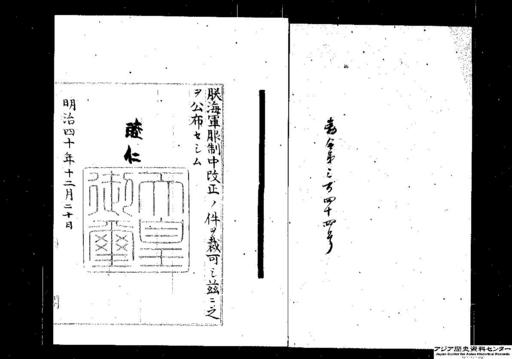 勅令第三百四十四号
朕海軍服制中改正ノ件ヲ裁可シ茲ニ之
ヲ公布セシム
睦仁
天皇
御璽
明治四十年十二月二十日
アジア歴史資料センター
Japan Center for Asian Historical Records